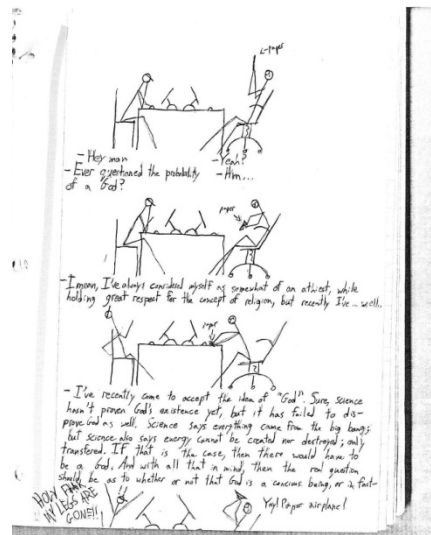 paper
- Hey man
- Yeah?
- Ever questioned the probability
- Hm...
of a "God"?
paper
- I mean, I've always considered myself as somewhat of an athiest, while
holding great respect for the concept of religion, but recently I've... well..
paper
- I've recently come to accept the idea of "God". Sure, science
hasn't proven God's existence yet, but it has failed to dis-
prove God as well. Science says everything came from the big bang;
but science also says energy cannot be created nor destroyed; only
transfered. If that is the case, then there would have to
be a God. And with all that in mind, then the real question
should be as to whether or not that God is a concious being, or in fact-
HOLY
MY LEGS ARE
GONE!!
Yay! Paper airplane!